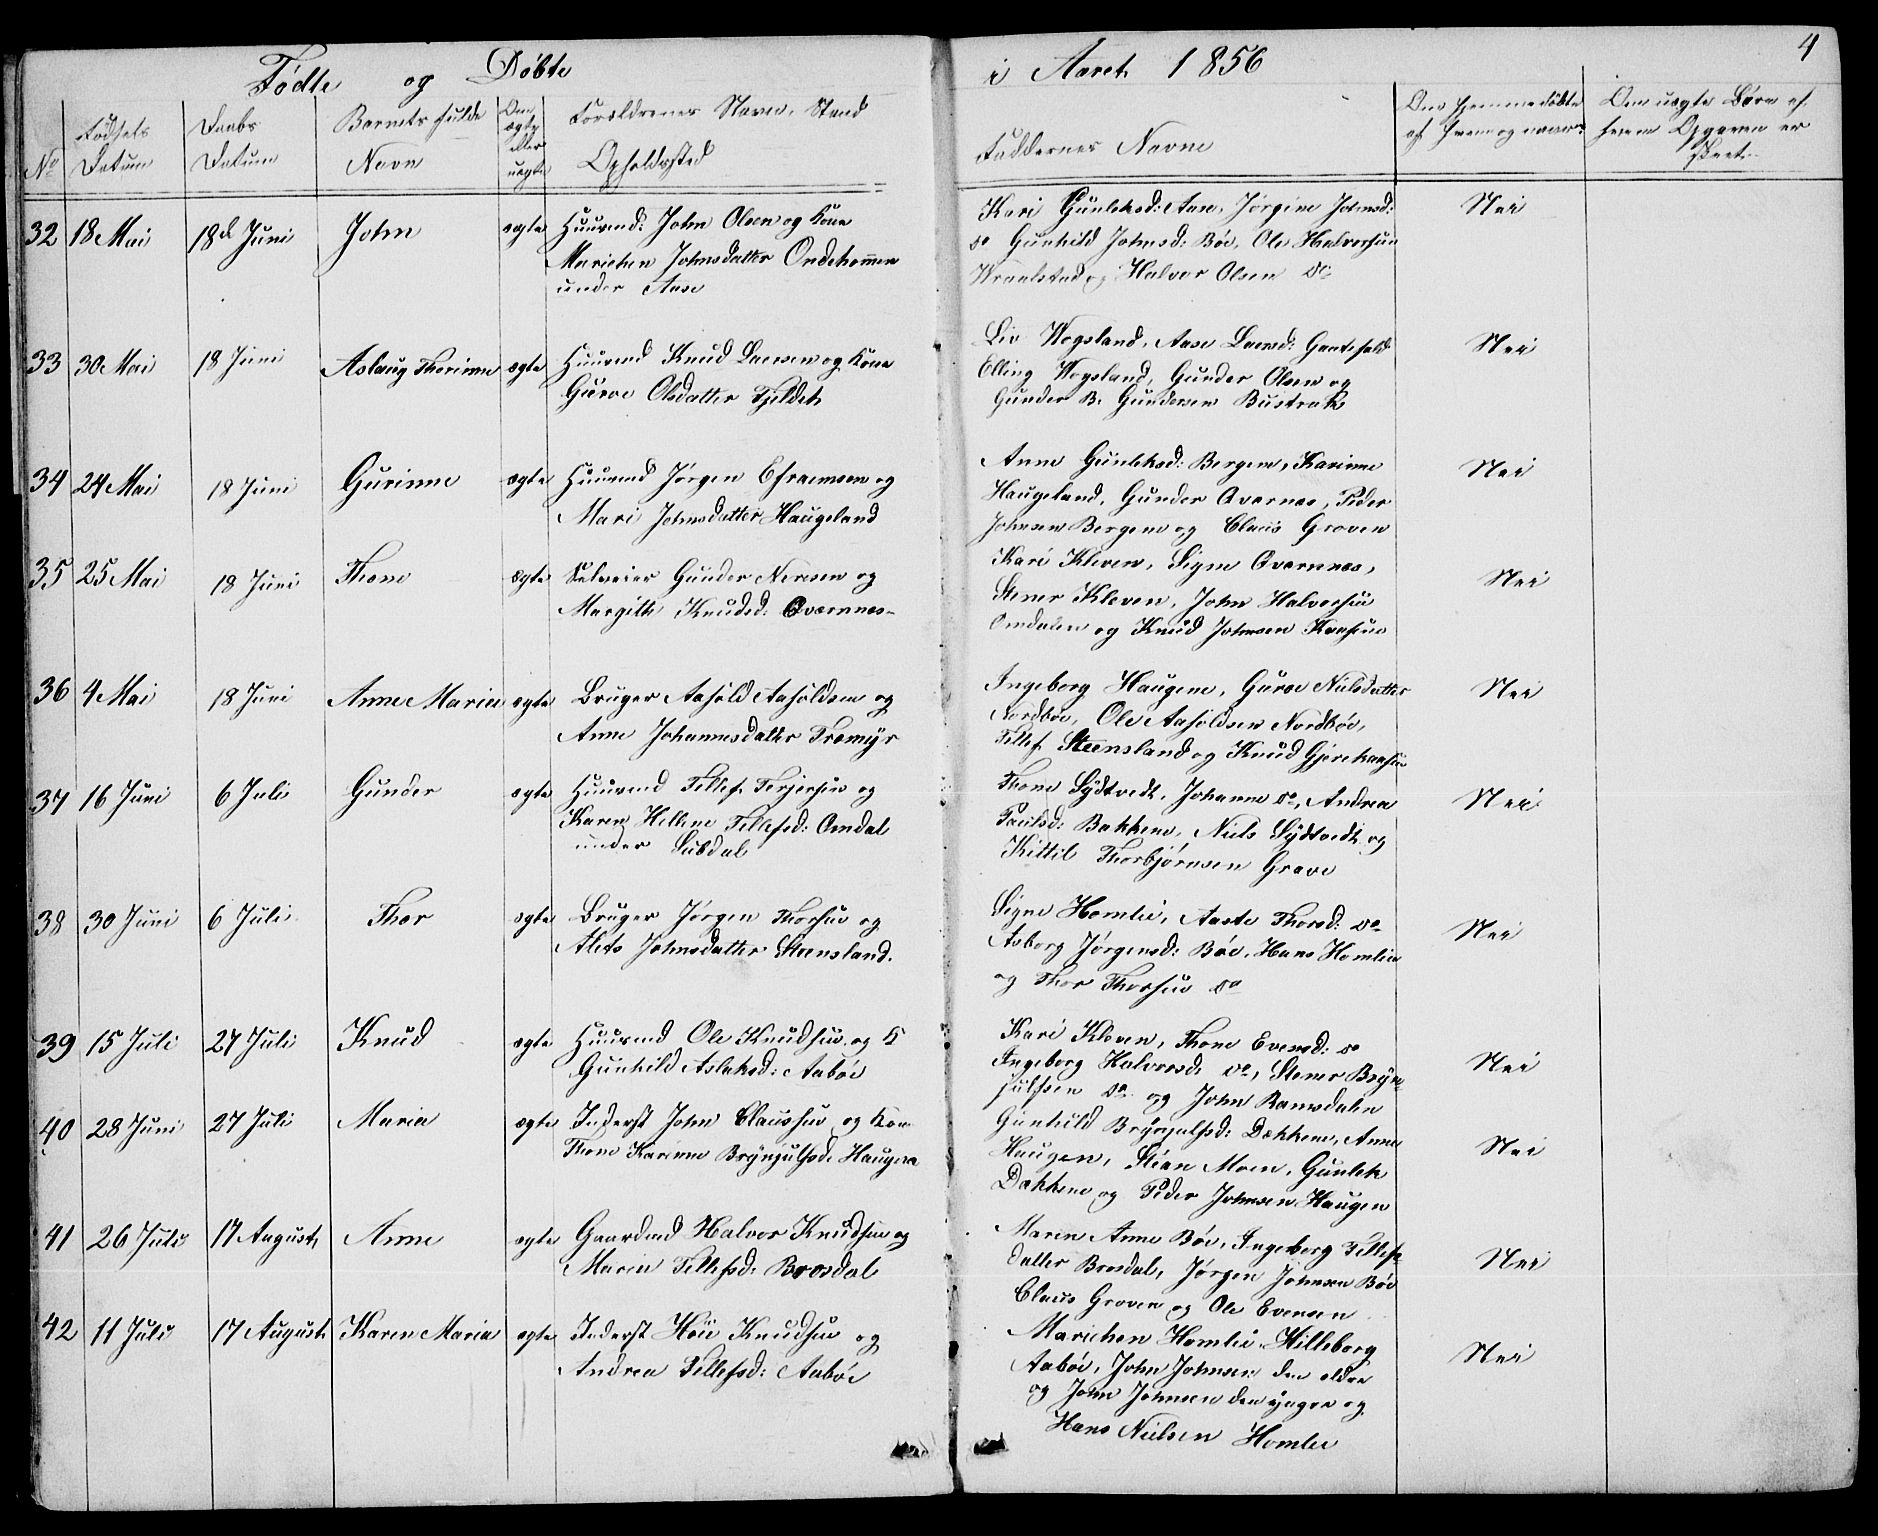 Fødte og Døbte i Aaret 1856 4
No Fødsels Datum Daabs Datum Barnets fulde Navn Om ægte eller uægte Forældrenes Navn, Stand Opholdssted
Faddernes Navne Om hjemmedøbte af hvem og naar Om uægte Børn af hvem Opgaven er skeet
32 18 Mai 18d Juni John ægte Huusmd: John Olsen og Kone
Marichen Johnsdatter
under Aase
Kari Gunleksd: Aase, Jørgine Johnsd: Nei
do Gunhild Johnsd: Bøe, Ole Halvorsen
og Halvor Olsen do
33 30 Mai 18 Juni Aslaug Thorinne ægte Huusmd Knud Larsen og Kone
Guroe Olsdatter Fjeldet
Liv Wegsland, Aase Larsd: Nei
Elling Wegsland, Gunder Olsen og
Gunder B. Gundersen Bustrak
34 24 Mai 18 Juni Gurinne ægte Huusmd Jørgen Efraimsen og
Mari Johnsdatter Haugeland
Anne Gunleksd: Bergene, Karinne Nei
Haugeland, Gunder Qvarnæs, Peder
Johnsen Bergene og Claus Groven
35 25 Mai 18 Juni Thone ægte Selveier Gunder Nersen og
Margith Knudsd: Qværnnæs
Kari Kleven, Signe Qværnnæs, Nei
Stener Kleven, John Halvorsen
Omdalen og Knud Johnsen
36 4 Mai 18 Juni Anne Maria ægte Bruger Aasold Aasoldsen og
Anne Johannesdatter Tromyr
Ingeborg Haugene, Guroe Nielsdatter Nei
Nordbøe, Ole Aasoldsen Nordbøe,
Tellef Steensland og Knud
37 16 Juni 6 Juli Gunder ægte Huusmd Tellef Terjersen og
Karen Hellene Tellefsd: Omdal
under Lubdal
Thone Lydtvedt, Johanne do, Andrea Nei
Paulsd: Bakkene, Niels Lydtvedt og
Kittil Thorbjørnsen Grave
38 30 Juni 6 Juli Thor ægte Bruger Jørgen Thorsen og
Alets Johnsdatter Steensland.
Signe Homlie, Aaste Thorsd: do Nei
Asborg Jørgensd: Bøe, Hans Homlie
og Thor Thorsen do
39 15 Juli 27 Juli Knud ægte Huusmd Ole Knudsen og K
Gunhild Aslaksd: Aabøe
Kari Kleven, Thone Evensd: do Nei
Ingeborg Halvorsd: do, Stener Bryn-
julfsen do og John Ramsdalen
40 28 Juni 27 Juli Maria ægte Inderst John Claussen og Kone
Thone Karinne Brynjulfsd: Haugene
Gunhild Brynjulfsd: Dækkene, Anne Nei
Haugen, Stian Moen, Gunlek
Dækkene og Peder Johnsen Haugen
41 26 Juli 17 August Anne ægte Gaardmd Halvor Knudsen og
Maria Tellefsd: Brosdal
Maren Anne Bøe, Ingeborg Tellefs- Nei
datter Brosdal, Jørgen Johnsen Bøe
Claus Groven og Ole Evensen
42 11 Juli 17 August Karen Maria ægte Inderst Knudsen og
Andrea Tellefsd: Aabøe
Marichen Homlie, Hilleborg Nei
Aabøe, John Johnsen den ældre
og John Johnsen den yngre og
Hans Nielsen Homlie